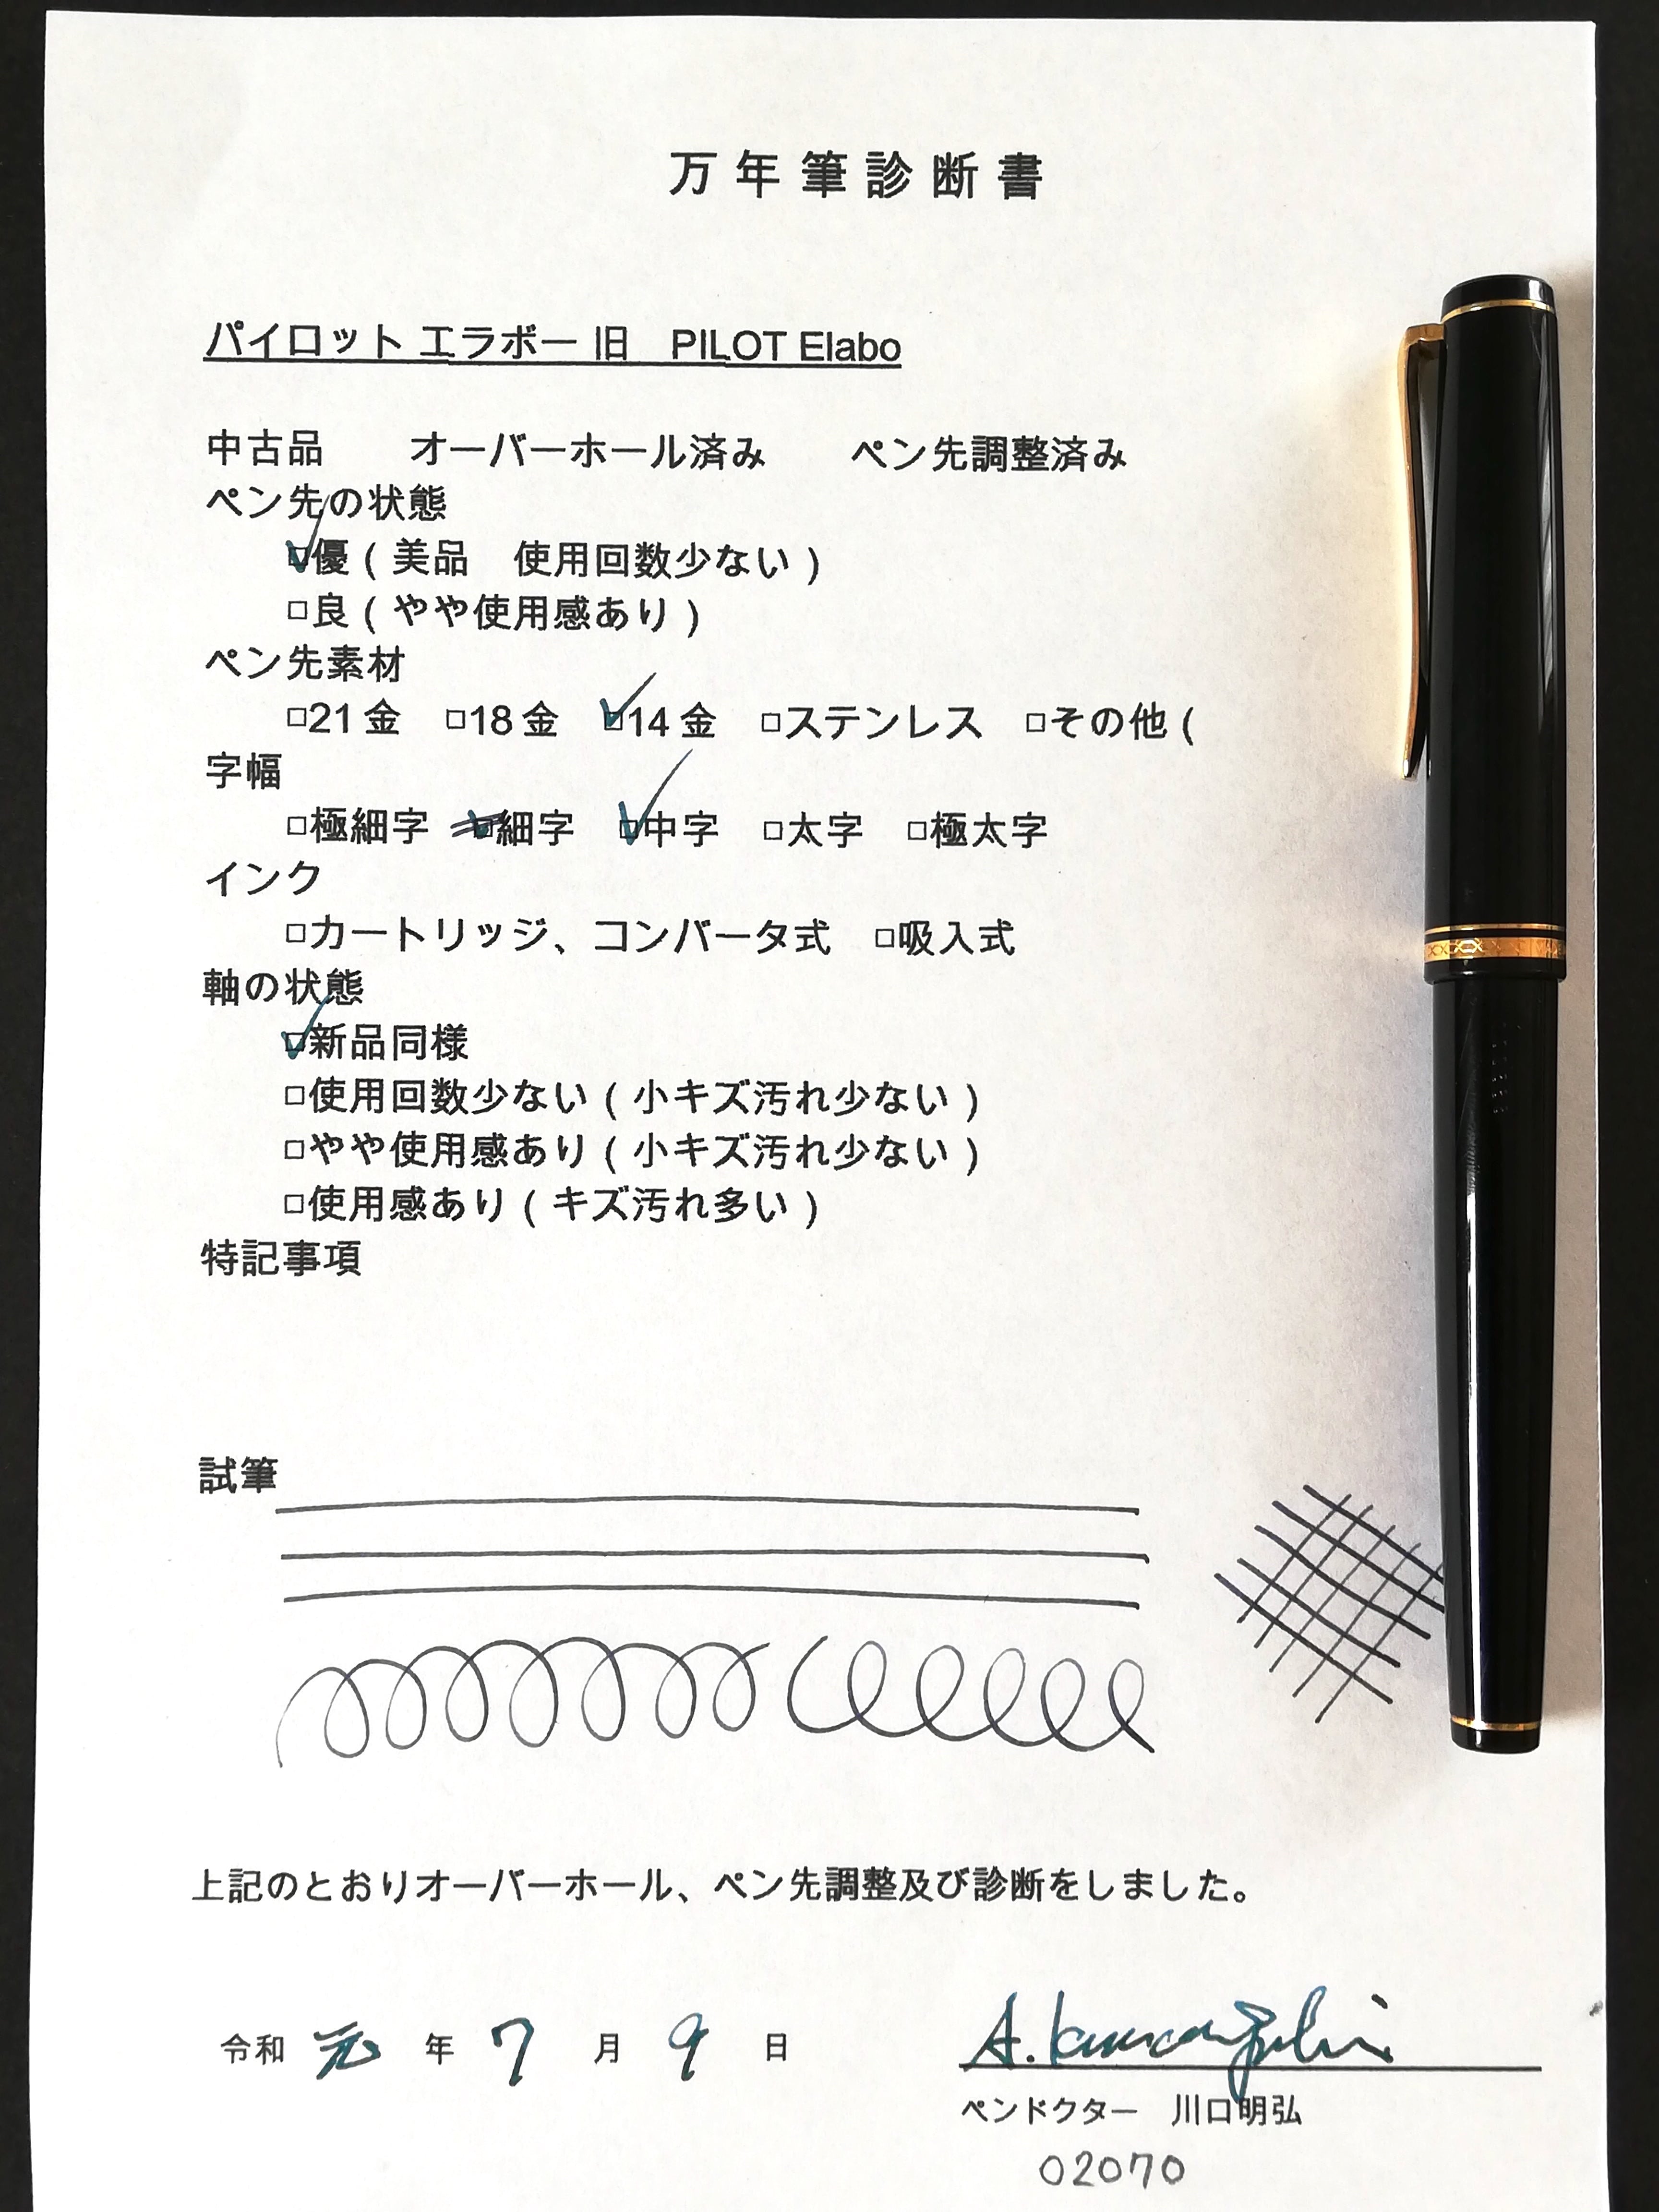 万年筆診断書
パイロット エラボー 旧　PILOT Elabo
中古品　　オーバーホール済み　　ペン先調整済み
ペン先の状態
☑優（美品　使用回数少ない）
□良（やや使用感あり）
ペン先素材
□21金　□18金　☑14金　□ステンレス　□その他（
字幅
□極細字　☑細字　☑中字　□太字　□極太字
インク
□カートリッジ、コンバータ式　□吸入式
軸の状態
☑新品同様
□使用回数少ない（小キズ汚れ少ない）
□やや使用感あり（小キズ汚れ少ない）
□使用感あり（キズ汚れ多い）
特記事項
試筆
上記のとおりオーバーホール、ペン先調整及び診断をしました。
令和 元 年 7 月 9 日
A. Kawaguchi
ペンドクター　川口明弘
02070